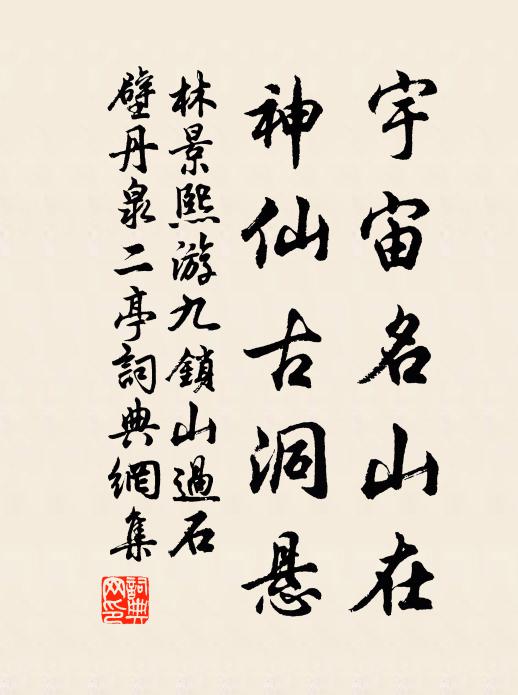 宇宙名山在
神仙古洞悬
林景熙游九鎖山過石
壁丹泉二亭詞典網集
詞典
网印